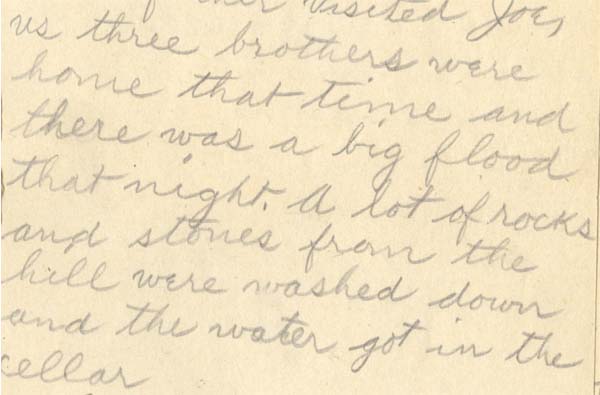 visited Joe,
us three brothers were
home that time and
there was a big flood
that night. A lot of rocks
and stones from the
hill were washed down
and the water got in the
cellar